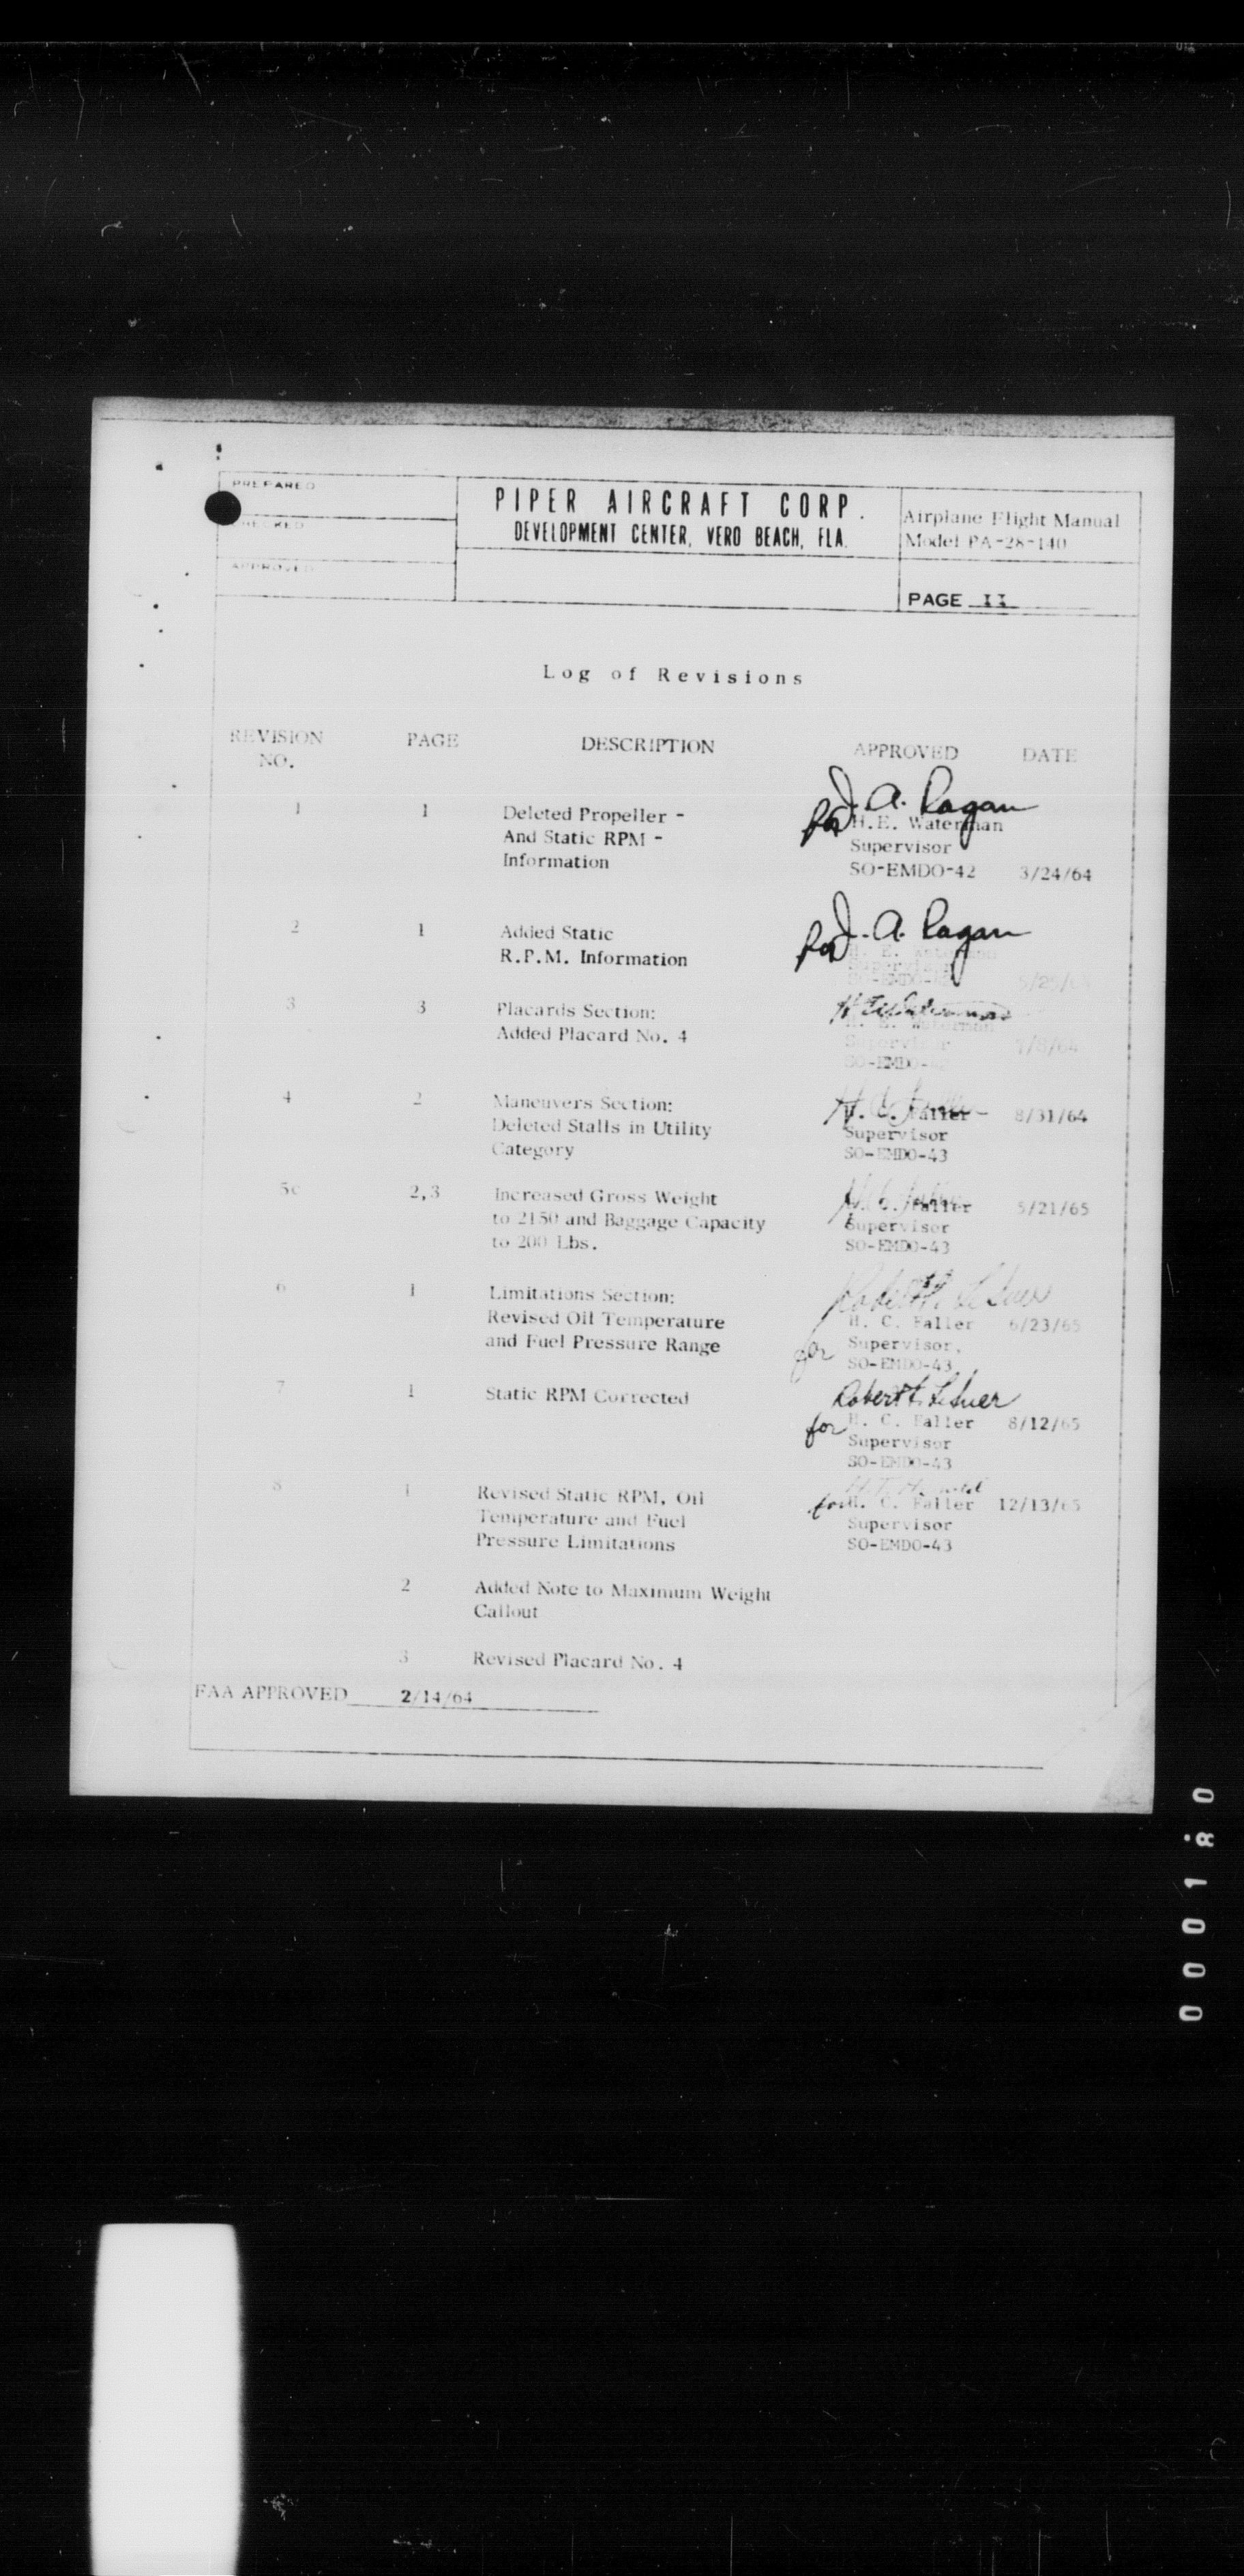 PREPARED
CHECKED
APPROVED
PIPER AIRCRAFT CORP.
DEVELOPMENT CENTER, VERO BEACH, FLA.
Airplane Flight Manual
Model PA-28-140
PAGE II
Log of Revisions
REVISION NO. PAGE DESCRIPTION APPROVED DATE
1 1 Deleted Propeller -
And Static RPM -
Information
for J. A. Ragan
H.E. Waterman
Supervisor
SO-EMDO-42 3/24/64
2 1 Added Static
R.P.M. Information
for J. A. Ragan
H. E. Waterman
Supervisor
SO-EMDO-42
3 3 Placards Section:
Added Placard No. 4
H E Waterman
H. E. Waterman
Supervisor 7/8/64
SO-EMDO-
4 2 Maneuvers Section:
Deleted Stalls in Utility
Category
H. C. Faller 8/31/64
Supervisor
SO-EMDO-43
5c 2,3 Increased Gross Weight
to 2150 and Baggage Capacity
to 200 Lbs.
H. C. Faller 5/21/65
Supervisor
SO-EMDO-43
6 1 Limitations Section:
Revised Oil Temperature
and Fuel Pressure Range
H. C. Faller 6/23/65
for Supervisor,
SO-EMDO-43
7 1 Static RPM Corrected
for H. C. Faller 8/12/65
Supervisor
SO-EMDO-43
8 1 Revised Static RPM, Oil
Temperature and Fuel
Pressure Limitations
for H. C. Faller 12/13/65
Supervisor
SO-EMDO-43
2 Added Note to Maximum Weight
Callout
3 Revised Placard No. 4
FAA APPROVED 2/14/64
000180